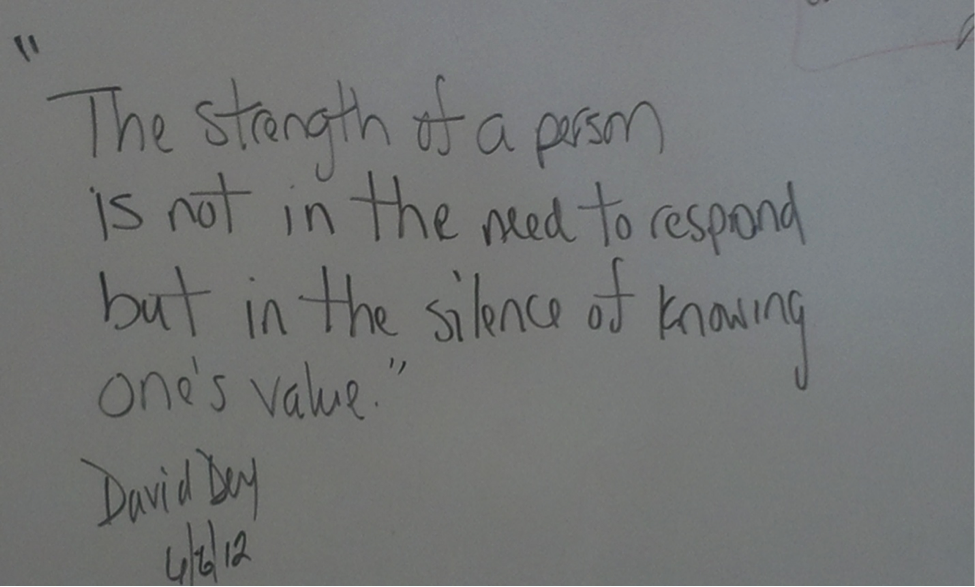 "
The strength of a person
is not in the need to respond
but in the silence of knowing
one's value."
David Dey
6/6/12